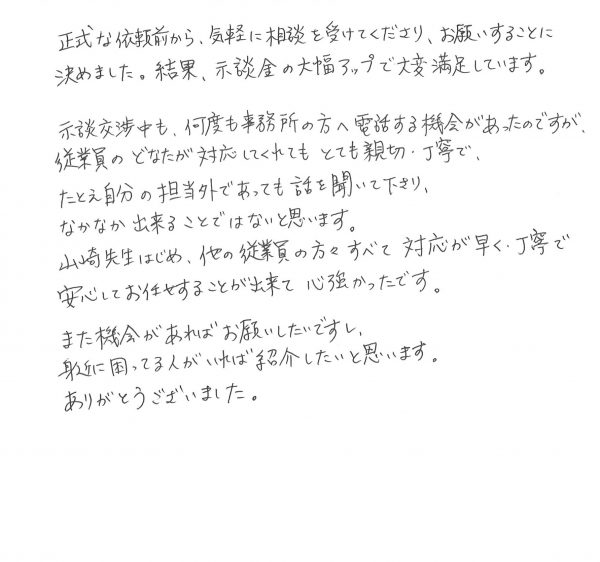 正式な依頼前から、気軽に相談を受けてくださり、お願いすることに
決めました。結果、示談金の大幅アップで大変満足しています。
示談交渉中も、何度も事務所の方へ電話する機会があったのですが、
従業員のどなたが対応してくれてもとても親切・丁寧で、
たとえ自分の担当外であっても話を聞いて下さり、
なかなか出来ることではないと思います。
山崎先生はじめ、他の従業員の方々すべて対応が早く・丁寧で
安心してお任せすることが出来て心強かったです。
また機会があればお願いしたいですし、
身近に困ってる人がいれば紹介したいと思います。
ありがとうございました。